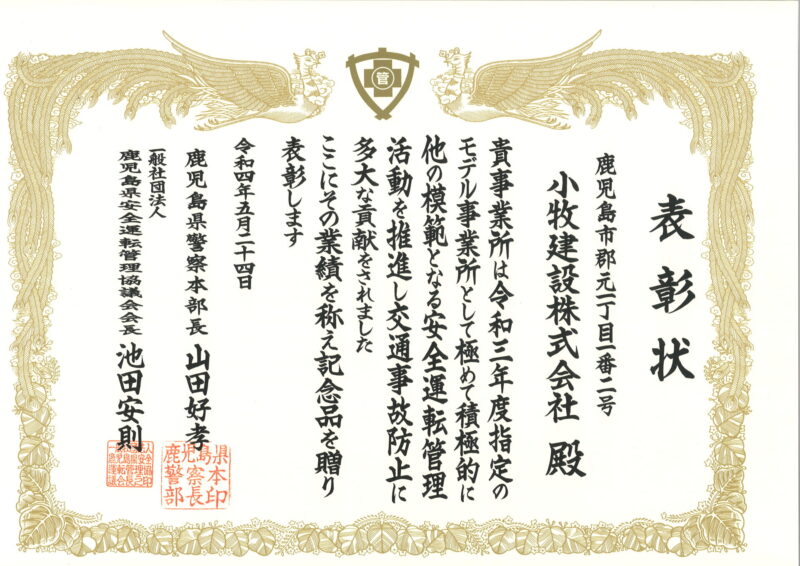 管
表彰状
鹿児島市郡元一丁目一番二号
小牧建設株式会社 殿
貴事業所は令和三年度指定の
モデル事業所として極めて積極的に
他の模範となる安全運転管理
活動を推進し交通事故防止に
多大な貢献をされました
ここにその業績を称え記念品を贈り
表彰します
令和四年五月二十四日
鹿児島県警察本部長 山田好孝
鹿児島県警察本部長印
一般社団法人
鹿児島県安全運転管理協議会会長 池田安則